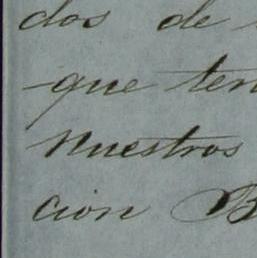 dos de
que ten
nuestros
cion B